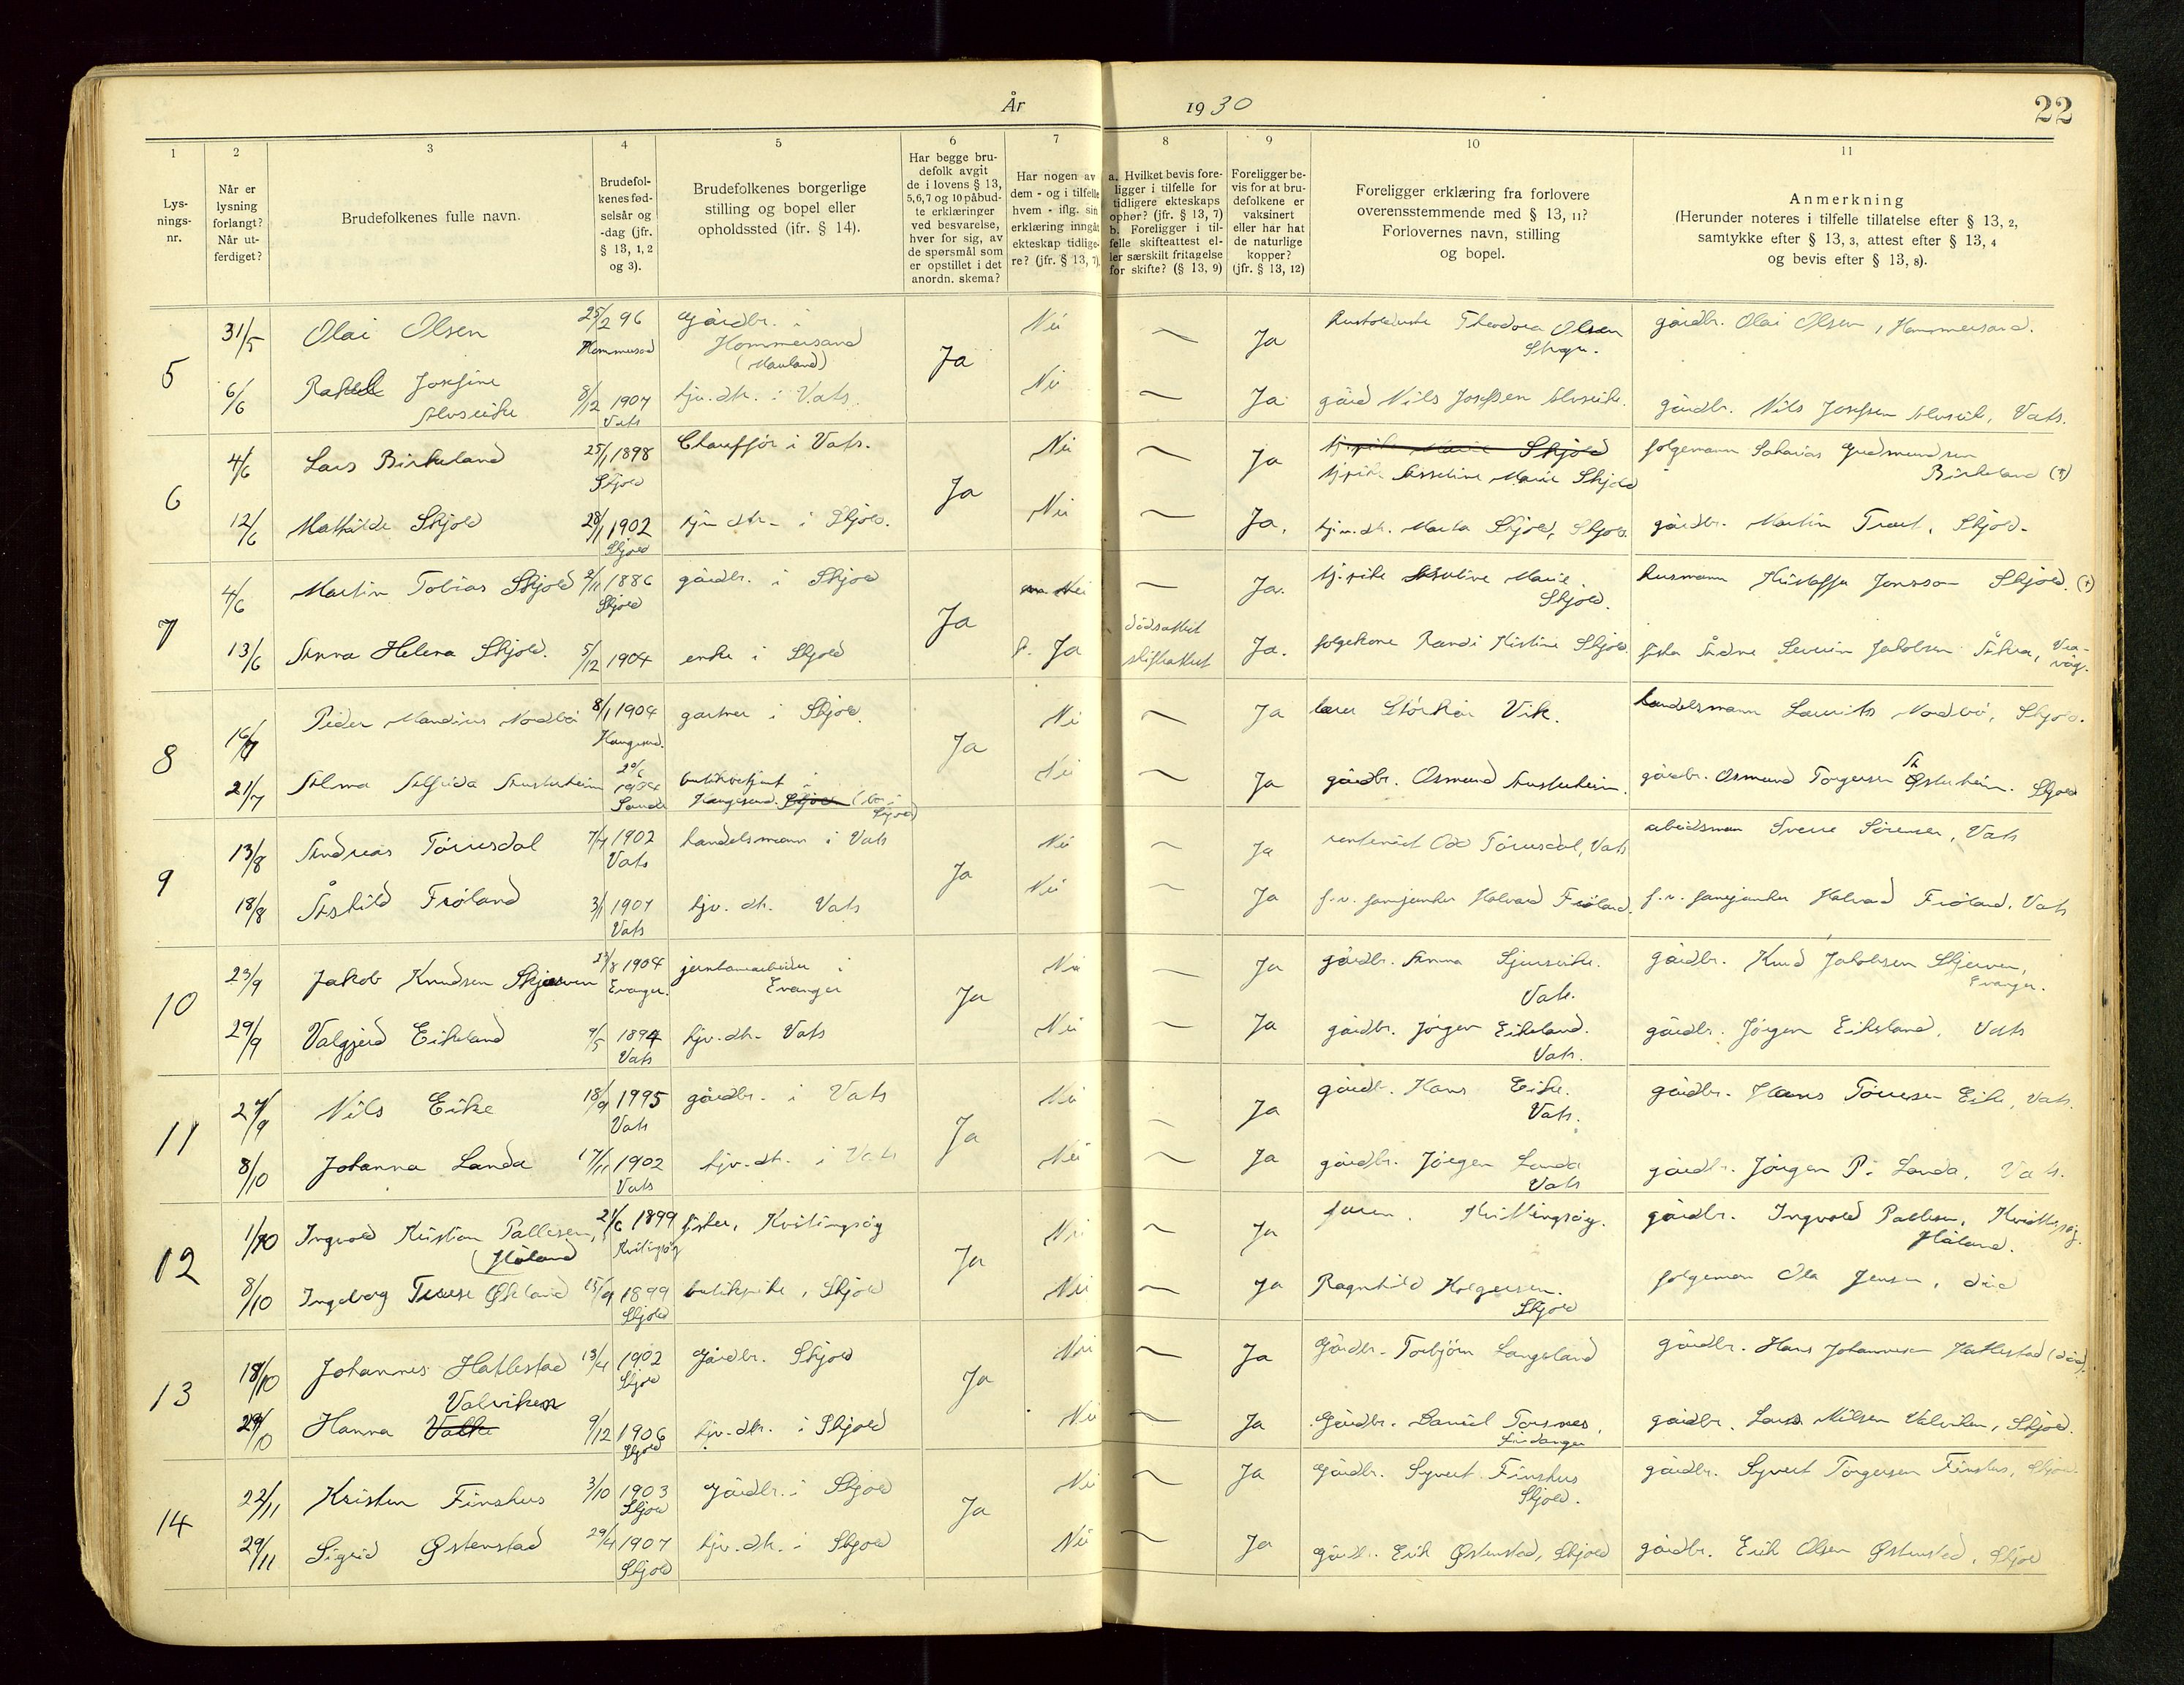 År 1930
22
1
2
3
4
5
6
7
8
9
10
11
Lys-
nings-
nr.
Når er
lysning
forlangt?
Når ut-
ferdiget?
Brudefolkenes fulle navn.
Brudefol-
kenes fød-
selsår og
-dag (jfr.
§ 13, 1, 2
og 3).
Brudefolkenes borgerlige
stilling og bopel eller
opholdssted (jfr. § 14).
Har begge bru-
defolk avgit
de i lovens § 13,
5,6,7 og 10 påbud-
te erklæringer
ved besvarelse,
hver for sig, av
de spørsmål som
er opstillet i det
anordn. skema?
Har nogen av
dem - og i tilfelle
hvem - iflg. sin
erklæring inngåt
ekteskap tidlige-
re? (jfr. § 13, 7).
a. Hvilket bevis fore-
ligger i tilfelle for
tidligere ekteskaps
ophør? (jfr. § 13, 7)
b. Foreligger i til-
felle skifteattest el-
ler særskilt fritagelse
for skifte? (§ 13, 9)
Foreligger be-
vis for at bru-
defolkene er
vaksinert
eller har hat
de naturlige
kopper?
(jfr. § 13, 12)
Foreligger erklæring fra forlovere
overensstemmende med § 13, 11?
Forlovernes navn, stilling
og bopel.
Anmerkning
(Herunder noteres i tilfelle tillatelse efter § 13, 2,
samtykke efter § 13, 3, attest efter § 13, 4
og bevis efter § 13, 8).
5
31/5 Olai Olsen 25/2 96 gårdbr. i Nei ~ Ja Theodora Olsen gårdbr. Olai Olsen, Hammersand.
Hommersand
(Mauland)
Ja
6/6 Rakel Josefine 8/12 1907 tjv. dtr. i Vats. Nei ~ Ja gård Nils Josefsen gårdbr. Nils Josefsen Vats.
Vats
6
4/6 Lars Birkeland 25/1 1898 Chauffør i Vats. Nei ~ Ja Marie Skjold folgemann Sakarias Gudmundsen
Skjold tj.pike Asseline Marie Skjold Birkeland (†)
Ja
12/6 Mathilde Skjold 28/1 1902 i Skjold. Nei ~ Ja. Marta Skjold, Skjold. gårdbr. Martin Skjold.
Skjold
7
4/6 Martin Tobias Skjold 2/11 1886 gårdbr. i Skjold Nei ~ Ja. tj.pike Marie husmann Kristoffer Jonsson Skjold. (†)
Skjold Skjold.
Ja dødsattest
13/6 Anna Helena Skjold. 5/12 1904 enke i Skjold Ja skifteattest Ja. folgekone Randi Kistine Skjold. Severin Jakobsen Åkra, Vea-
våg.
8
16/7 Peder Mandius Nordbö 8/1 1904 gartner i Skjold. Nei ~ Ja lærer Störkår Vik. handelsmann Laurits Nordbö, Skjold.
Haugesund.
Ja
21/7 Alma Alfrida Austerheim 1904 butikbetjent i Nei ~ Ja gårdbr. Osmund Austerheim. gårdbr. Osmund Torgersen Østerheim. Skjold
Sande Haugesund. Skjold (bor i
Skjold)
9
13/8 Andreas Törresdal 7/4 1902 handelsmann i Vats Nei ~ Ja Odd Törresdal, Vats arbeidsmann Sverre Sörensen, Vats
Vats
Ja
18/8 Åshild Fröland 3/1 1907 tjv. dtr. Vats Nei ~ Ja f.v. fanejunker Halvard Fröland. f.v. fanejunker Halvard Fröland, Vats
Vats
10
23/9 Jakob Knudsen Skjerven 23/8 1904 jernbanearbeider i Nei ~ Ja gårdbr. Anna gårdbr. Knud Jakobsen Skjerven,
Evanger. Evanger Vats. Evanger.
Ja
29/9 Valgjerd Eikeland 9/5 1894 tjv. dtr. Vats Nei ~ Ja gårdbr. Jörgen Eikeland. gårdbr. Jörgen Eikeland, Vats
Vats Vats.
11
27/9 Nils Eike 18/9 1995 gårdbr. i Vats Nei ~ Ja gårdb. Hans Eike. gårdbr. Hans Törresen Eike, Vats.
Vats Vats.
Ja
8/10 Johanna Landa 17/11 1902 tjv. dtr. i Vats Nei ~ Ja gårdbr. Jörgen Landa gårdbr. Jörgen P. Landa, Vats.
Vats Vats
12
1/10 Ingvold Kristian Pallesen, 21/6 1899 fisker, Kvitingsöy Nei ~ Ja Kvittingsöy. gårdbr. Ingvold Pallesen, Kvittingsöy.
(Håland Kvitingsöy Håland.
Ja
8/10 Ingeborg Økland 15/9 1899 butikpike, Skjold Nei ~ Ja Ragnhild Holgersen. folgemann Ola Jensen, död
Skjold Skjold
13
18/10 Johannes Hatlestad 13/4 1902 Gårdbr. Skjold Nei ~ Ja Gårdbr. Torbjörn Langeland gårdbr. Hans Johannesen Hatlestad (död).
Skjold
Valviken Ja
29/10 Hanna 9/12 1906 tjv. dtr. i Skjold Nei ~ Ja Gårdbr. Daniel Torsnes, gårdbr. Lars Nilsen Valviken, Skjold.
Skjold
14
22/11 Kristen Finshus 3/10 1903 Gårdbr. i Skjold Nei ~ Ja Gårdbr. Syvert Finshus gårdbr. Syvert Torgersen Finshus, Skjold.
Skjold Skjold.
Ja
29/11 Sigrid Østenstad 29/4 1907 tjv. dtr. i Skjold Nei ~ Ja gårdbr. Erik Østenstad, Skjold gårdbr. Erik Olsen Østenstad, Skjold
Skjold